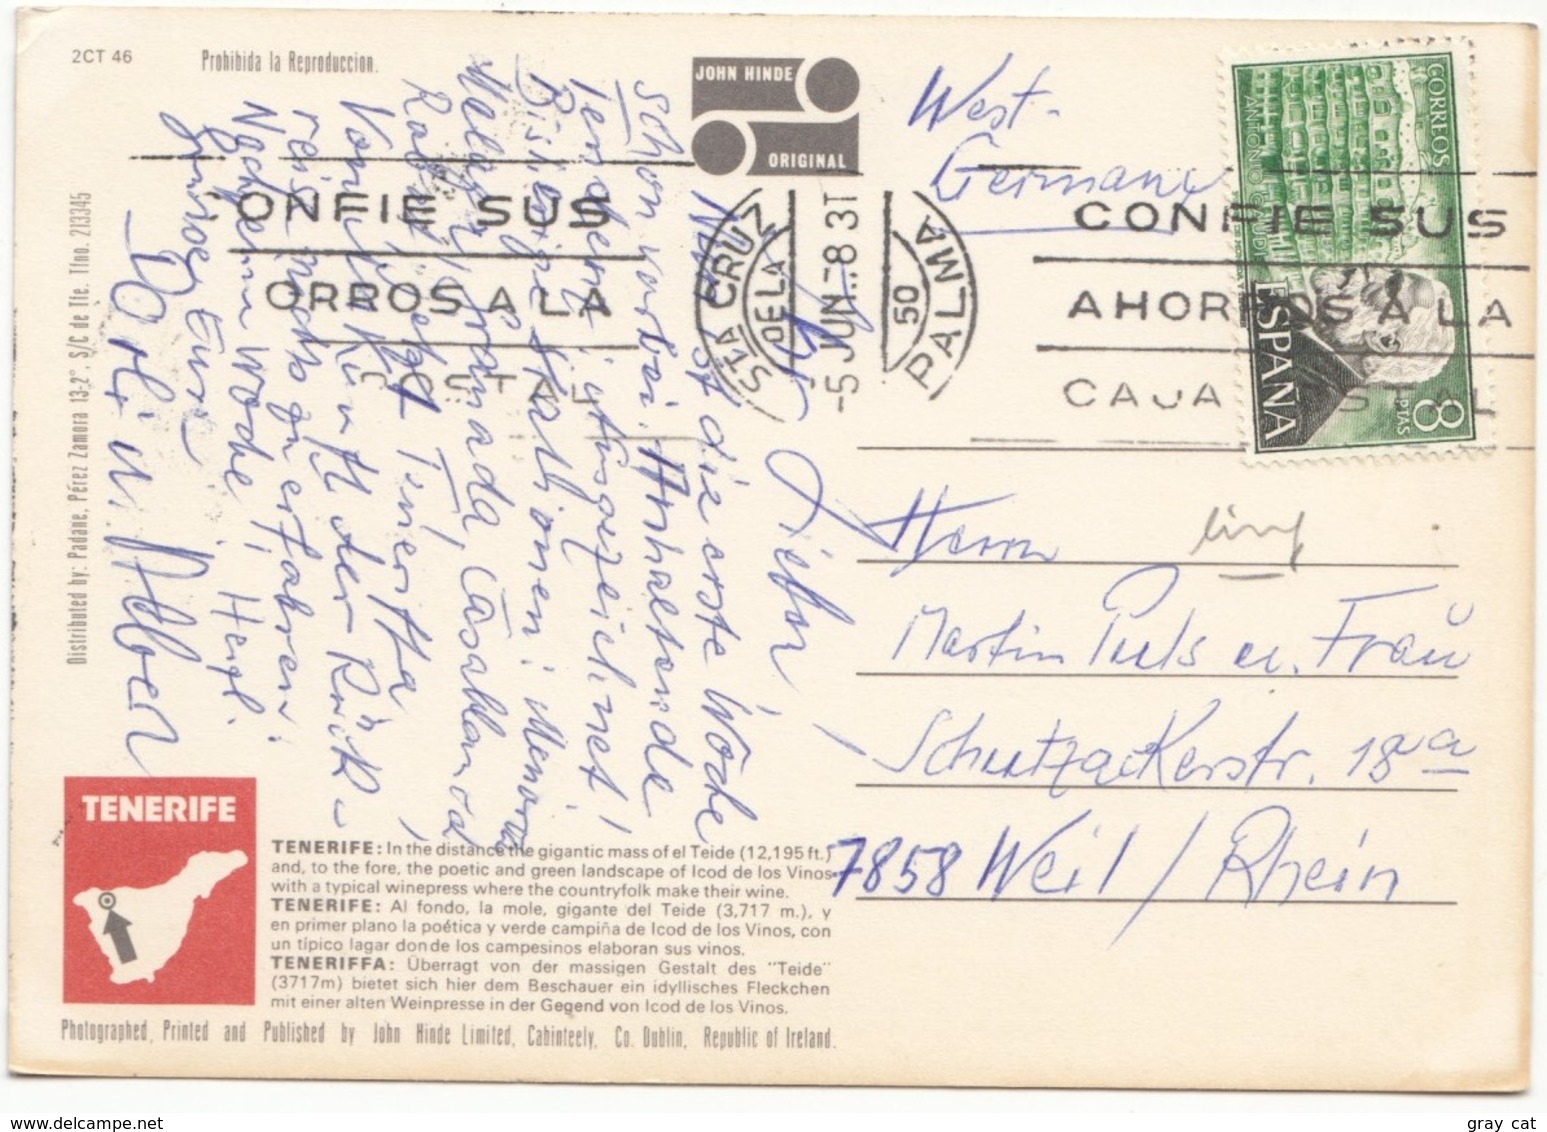 2CT 46
Prohibida la Reproduccion.
JOHN HINDE
ORIGINAL
Distributed by: Padane, Pérez Zamora 13-2°, S/C de Tfe. Tfno. 213345
Nun ist die erste Woche
schon vorbei. Anhaltende
Tendenz: ausgezeichnet!
Bisherige Stationen: Menorca
Malaga, Granada, Casablanca
Rabat, jetzt Teneriffa,
Vor
reis nichts zu erfahren.
Nächste Woche! Herzl.
Grüße Eure
Dorli u. Albert
CONFIE SUS
ORROS A LA
POSTAL
STA CRUZ DE LA PALMA
-5 JUN. 78 3T
50
CONFIE SUS
AHORROS A LA
CAJA POSTAL
CORREOS
ANTONIO GAUDI
ESPAÑA
8 PTAS
West-
Germany
Herrn
Martin Puls u. Frau
Schutzackerstr. 18a a
7858 Weil / Rhein
TENERIFE
TENERIFE: In the distance the gigantic mass of el Teide (12,195 ft.)
and, to the fore, the poetic and green landscape of Icod de los Vinos
with a typical winepress where the countryfolk make their wine.
TENERIFE: Al fondo, la mole, gigante del Teide (3,717 m.), y
en primer plano la poética y verde campiña de Icod de los Vinos, con
un típico lagar donde los campesinos elaboran sus vinos.
TENERIFFA: Überragt von der massigen Gestalt des "Teide"
(3717m) bietet sich hier dem Beschauer ein idyllisches Fleckchen
mit einer alten Weinpresse in der Gegend von Icod de los Vinos.
Photographed, Printed and Published by John Hinde Limited, Cabinteely, Co. Dublin, Republic of Ireland.
www.delcampe.net
gray cat